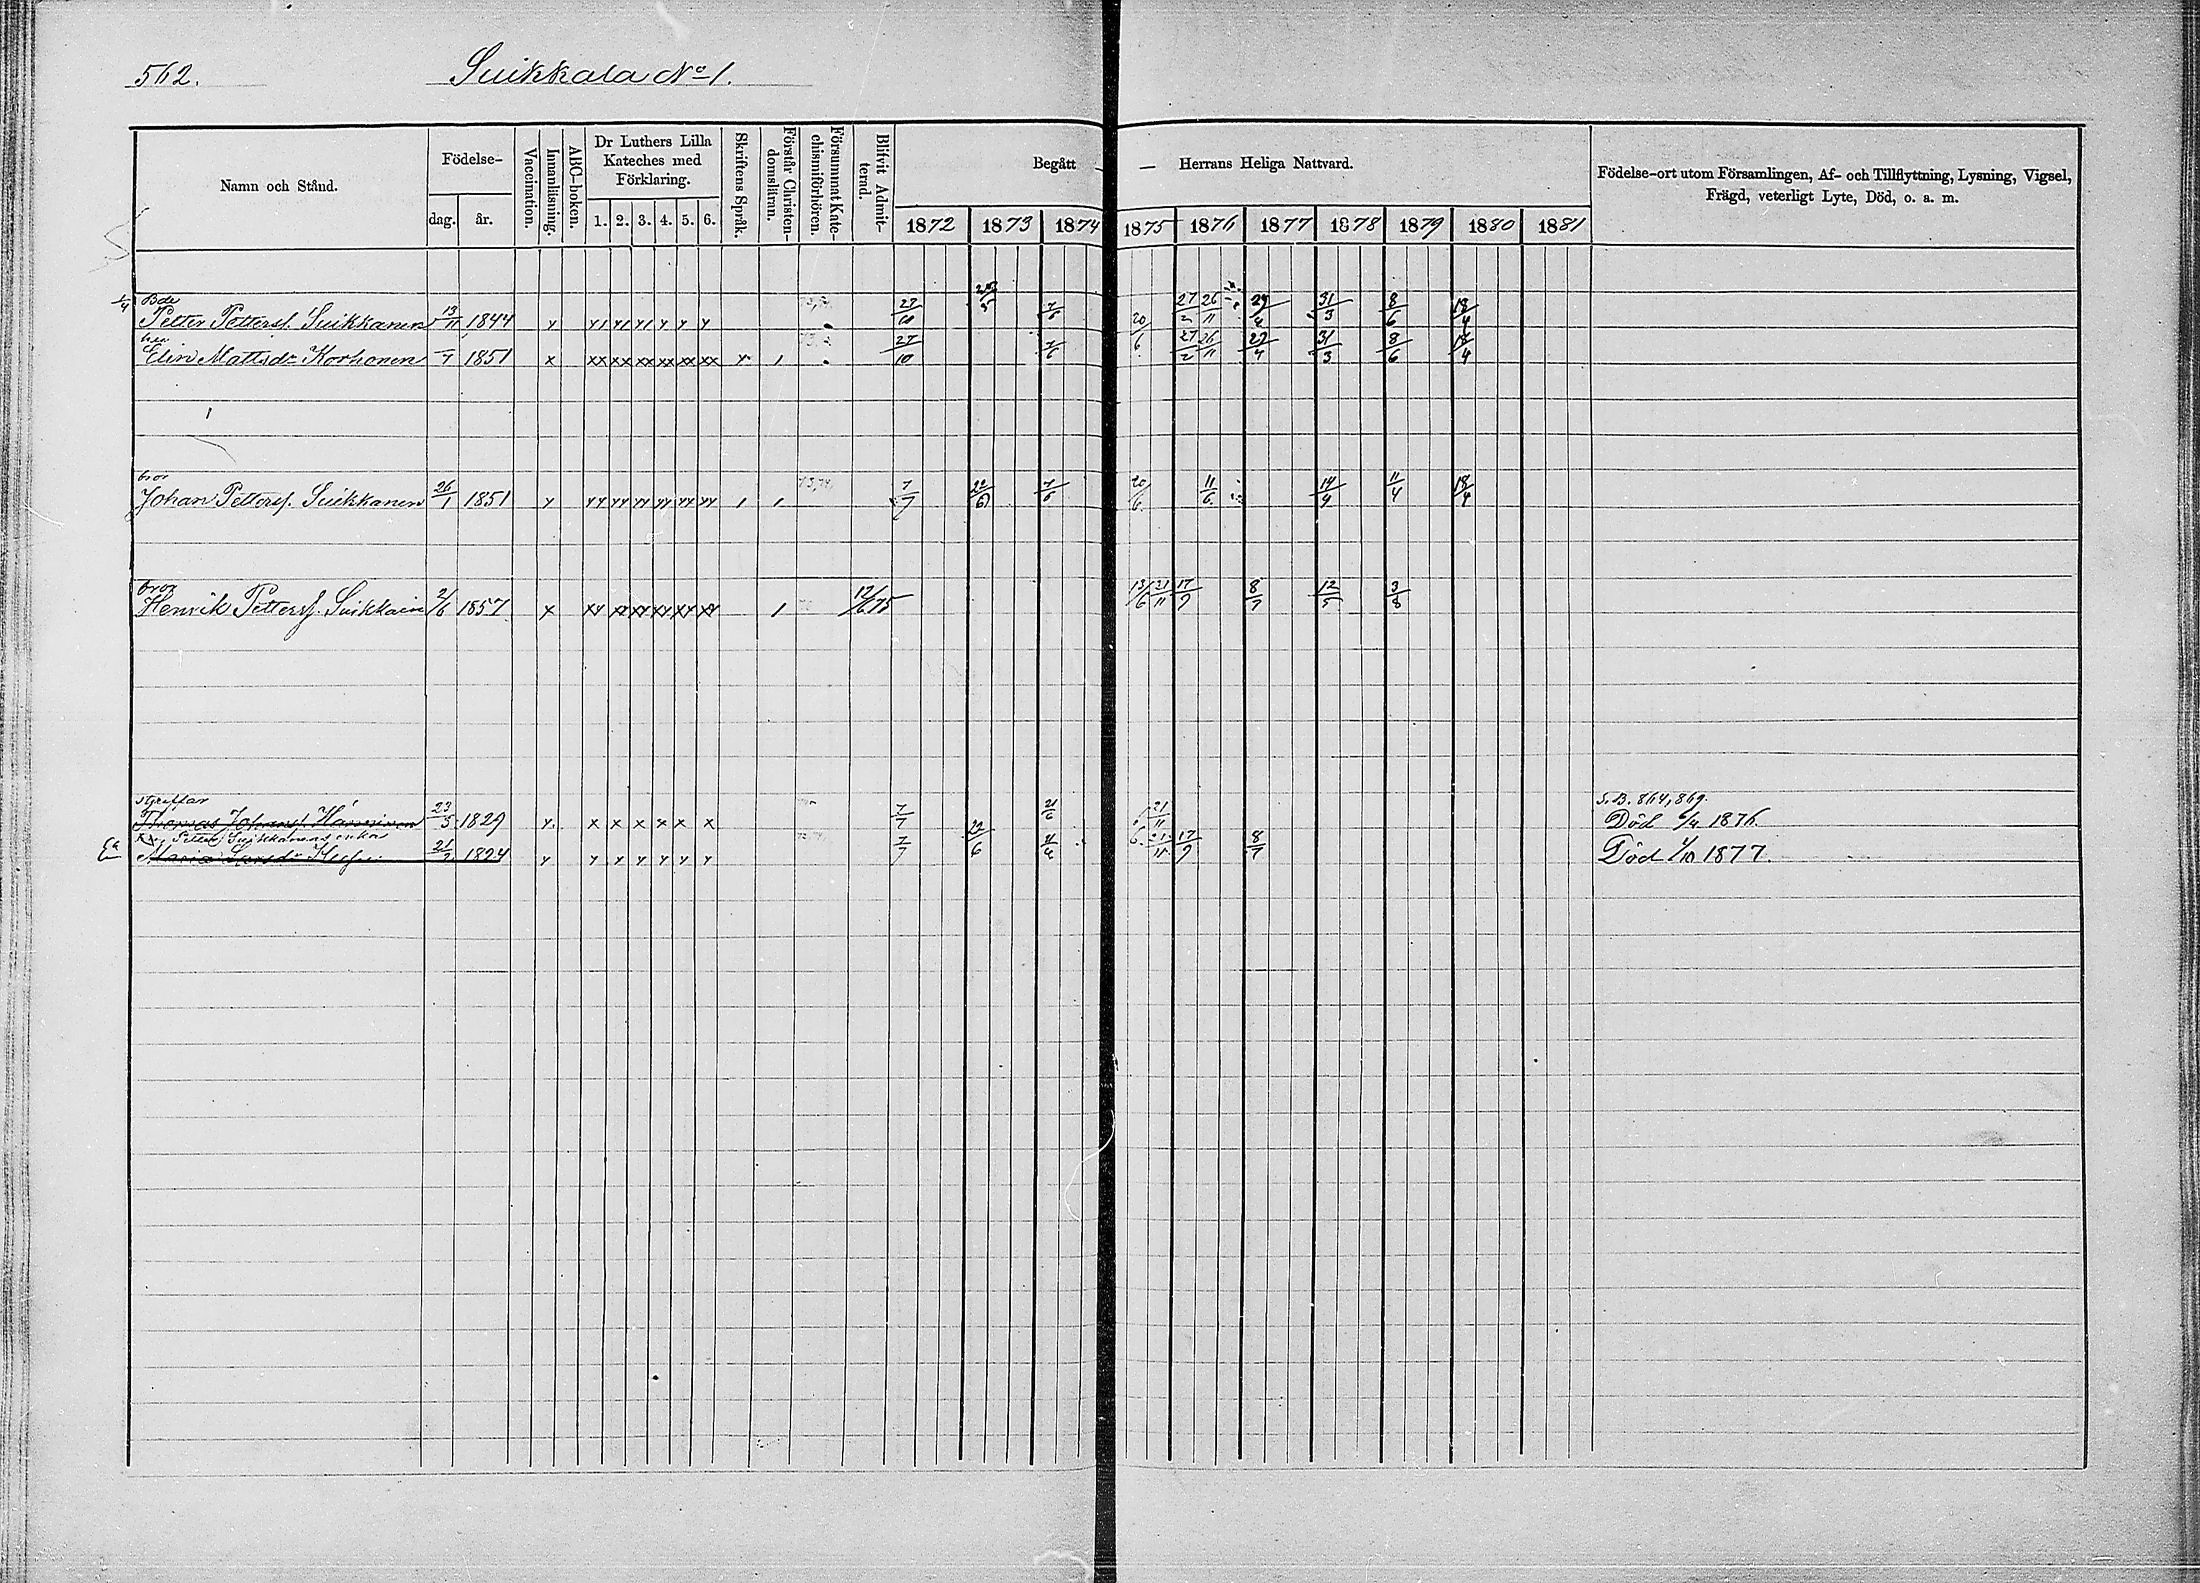 562. Suikkala No 1.
Namn och Stånd. Födelse- dag. år. Vaccination. Innanläsning. ABC-boken. Dr Luthers Lilla Kateches med Förklaring. 1. 2. 3. 4. 5. 6. Skriftens Språk. Förstår Christendomsläran. Försummat Katechismiförhören. Blifvit Admitterad. Begått — Herrans Heliga Nattvard. 1872 1873 1874 1875 1876 1877 1878 1879 1880 1881 Födelse-ort utom Församlingen, Af- och Tillflyttning, Lysning, Vigsel, Frägd, veterligt Lyte, Död, o. a. m.
1/4 Bde
Petter Petterss. Suikkanen 13/11 1844 x x x x x x x 27/10 7/6 20/6 27/2 26/11 29/4 31/3 8/6 18/4
hu
Elin Mattsdr Korhonen 1851 x xx xx xx xx xx xx x 27/10 7/6 27/2 26/11 29/4 31/3 8/6 18/4
bror
Johan Petterss. Suikkanen 26/1 1851 x xx xx xx xx xx xx 7/7 22/6 7/6 20/6 11/6 14/4 11/4 18/4
bror
Henrik Petterss. Suikkain 2/6 1857 x xx xx xx xx xx xx 12/6 75 13/6 21/11 17/9 8/7 12/5 3/8
styffar S. B. 864, 869.
Thomas Johanss. Hänninen 23/5 1829 x x x x x x x 7/7 21/6 21/11 Död 6/4 1876.
Petter Suikkanens enka
Ea Maria Larsdr 1824 x x x x x x x 7/7 22/6 21/11 17/9 8/7 Död 1/10 1877.